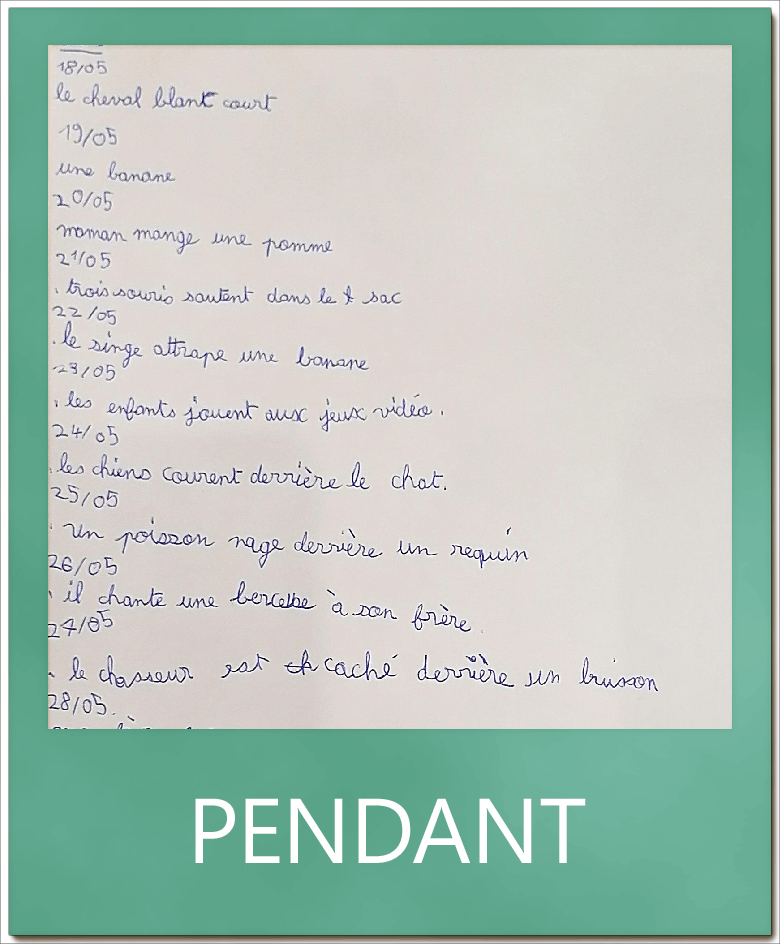 18/05
le cheval blant court
19/05
une banane
20/05
maman mange une pomme
21/05
. trois souris sautent dans le t sac
22/05
. le singe attrape une banane
23/05
. les enfants jouent aux jeux vidéo.
24/05
. les chiens courent derrière le chat.
25/05
. un poisson nage derrière un requin
26/05
. il chante une à son frère.
27/05
. le chasseur est ch caché derrière un buisson
28/05.
PENDANT